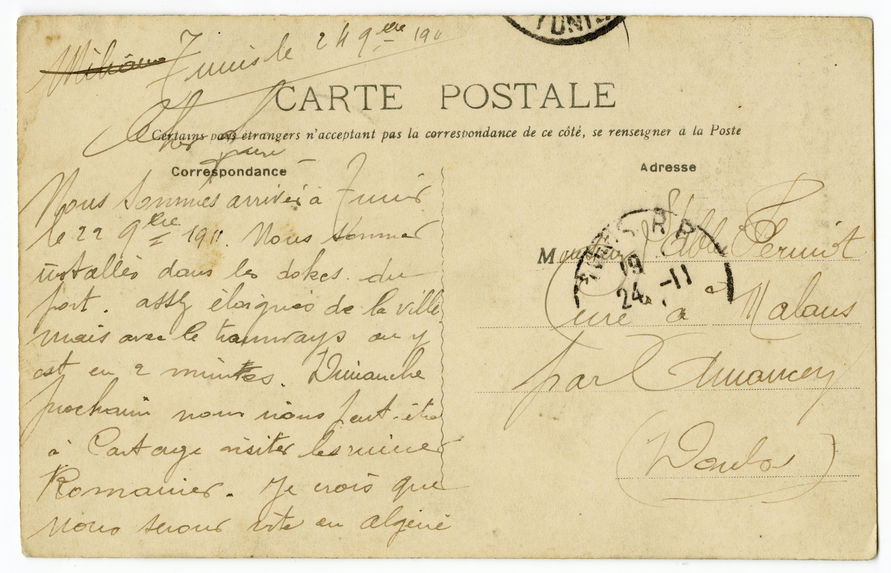 TUNIS
Tunis le 24 9bre 1911
CARTE POSTALE
Certains pays étrangers n'acceptant pas la correspondance de ce côté, se renseigner à la Poste
Cher
Correspondance
Adresse
Nous sommes arrivés à Tunis
le 22 9bre 1911. Nous sommes
installés dans les dokes du
port. assez éloignés de la ville
mais avec le tramways on y
est en 2 minutes. Dimanche
prochain nous irons peut-être
à Cartage visiter les ruines
Romaines. Je crois que
nous serons vite en algérie
Monsieur l'Abbé
TUNIS R.P
19
24 -11
Curé à Malans
par Amancey
(Doubs)